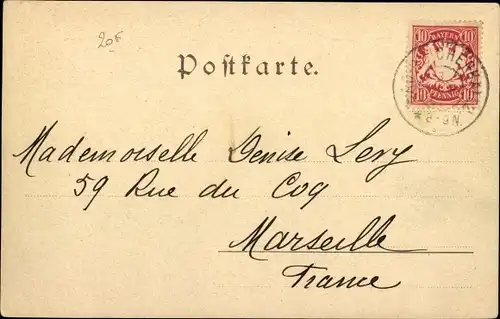 20F
Postkarte.
BAYERN
10 10
10 PFENNIG 10
8-9N.
Mademoiselle Denise Levy
59 Rue du Coq
Marseille
France